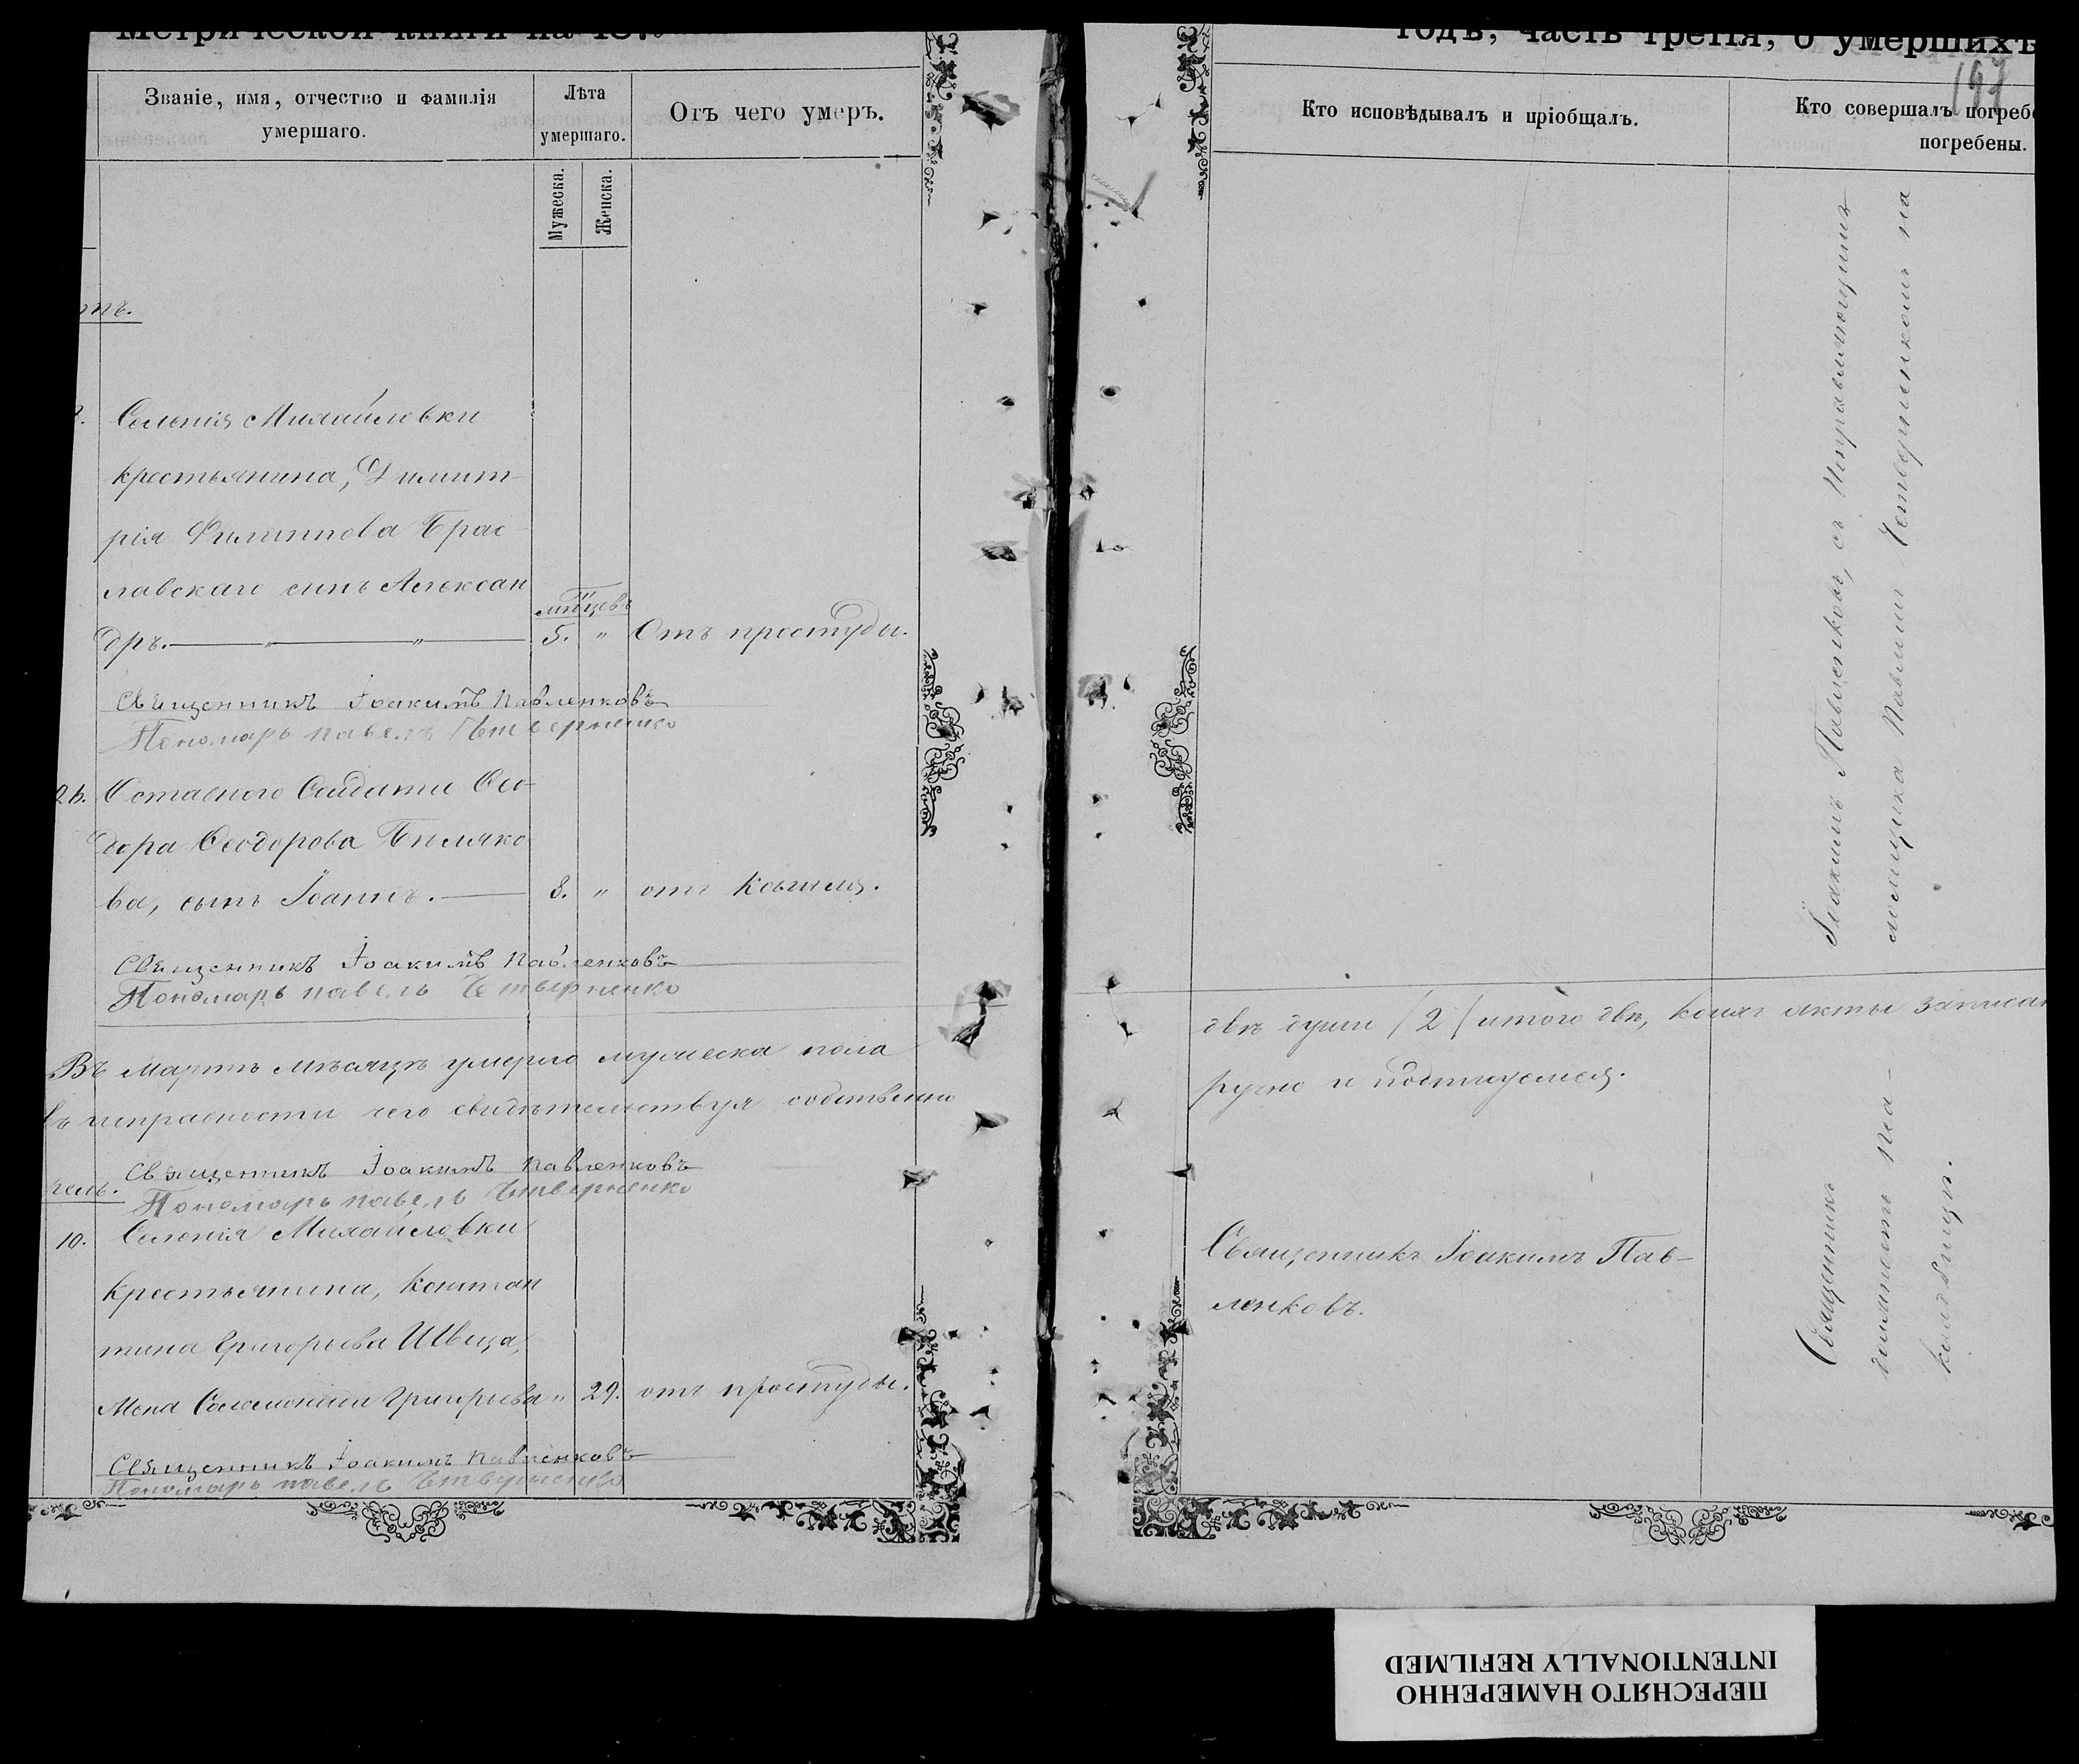 Метрической книги на 18
Званіе, имя, отчество и фамилія
умершаго.
Лѣта
умершаго.
Мужеска.
Женска.
Отъ чего умеръ.
Селенія Михайловки
крестьянина, Димит-
рія Филиппова Брас-
лавскаго сынъ Алексан
дръ.
мѣсяцевъ
5. " Отъ простуды.
Священникъ Іоакимъ Павленковъ
Пономарь Павелъ Четверненко
26. Отставнаго Солдата Ѳео-
дора Ѳеодорова Биляко
ва, сынъ Іоаннъ. 3. " отъ кашля.
Священникъ Іоакимъ Павленковъ
Пономарь Павелъ Четверненко
Въ Мартѣ мѣсяцѣ умерло мужеска пола
въ исправности чего свидѣтельствуя собственно
Священникъ Іоакимъ Павленковъ
рель. Пономарь Павелъ Четверненко
10. Селенія Михайловки
крестьянина, Констан
тина Григорьева Швеца,
жена Соломонія Григорьева " 29. отъ простуды.
Священникъ Іоакимъ Павленковъ
Пономарь Павелъ Четверненко
годъ, часть третія, о умершихъ
197
Кто исповѣдывалъ и пріобщалъ.
Кто совершалъ погребе
погребены.
двѣ души /2/ итого двѣ, коихъ акты записан
ручно и подписуемся.
Священникъ Іоакимъ Пав-
ленковъ.
Священникъ Іоакимъ Павленковъ, съ Исправляющимъ
должность пса-ломщика Павломъ Четверненкомъ на
кладбищѣ.
ПЕРЕСНЯТО НАМЕРЕННО
INTENTIONALLY REFILMED